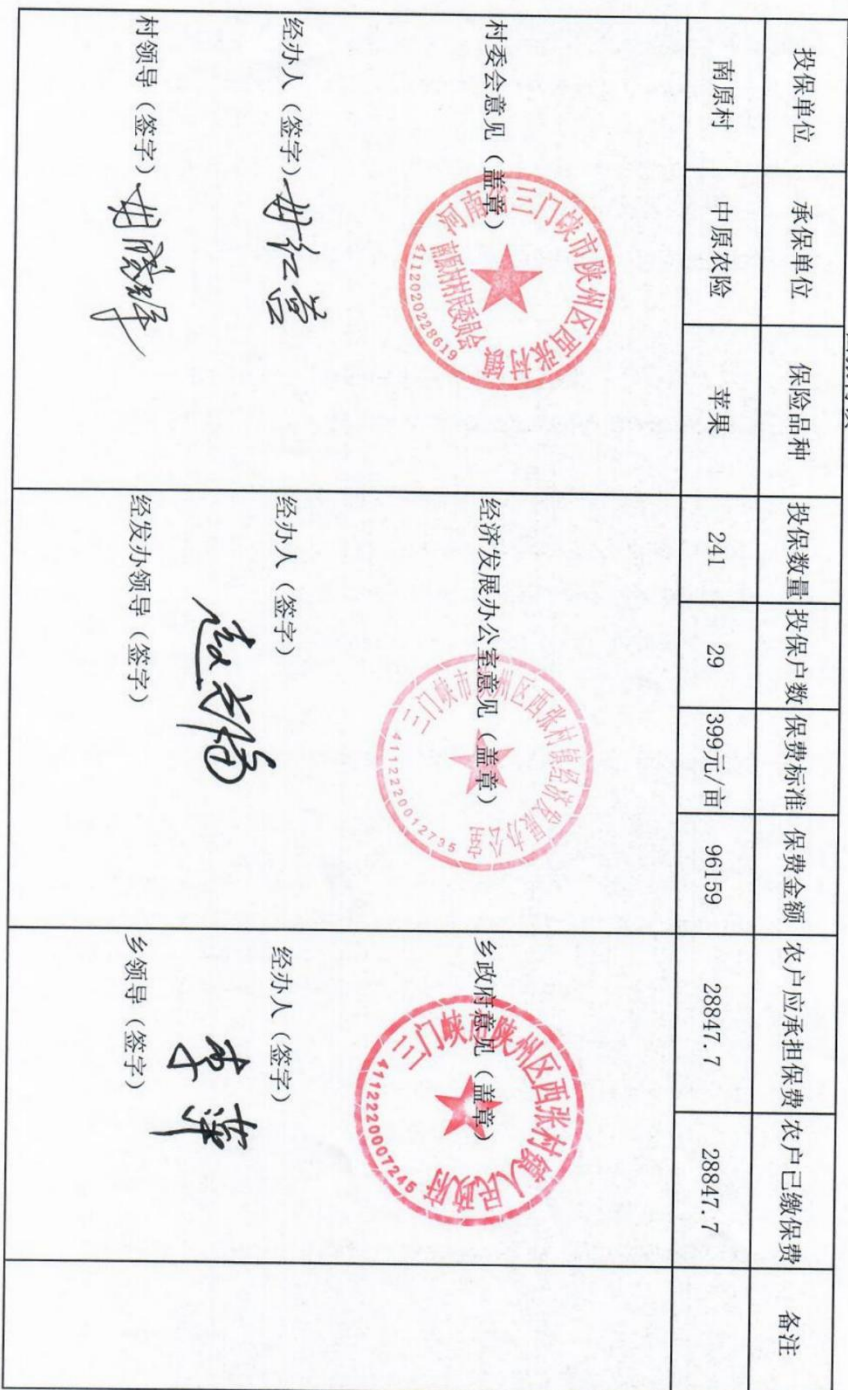 投保单位 承保单位 保险品种 投保数量 投保户数 保费标准 保费金额 农户应承担保费 农户已缴保费 备注
南原村 中原农险 苹果 241 29 399元/亩 96159 28847.7 28847.7
村委会意见（盖章）
河南省三门峡市陕州区西张村镇
南原村村民委员会
4112020228619
经办人（签字）
村领导（签字）
经济发展办公室意见（盖章）
三门峡市陕州区西张村镇经济发展办公室
4112220012735
经办人（签字）
经发办领导（签字）
乡政府意见（盖章）
三门峡市陕州区西张村镇人民政府
4112220007245
经办人（签字）
乡领导（签字）